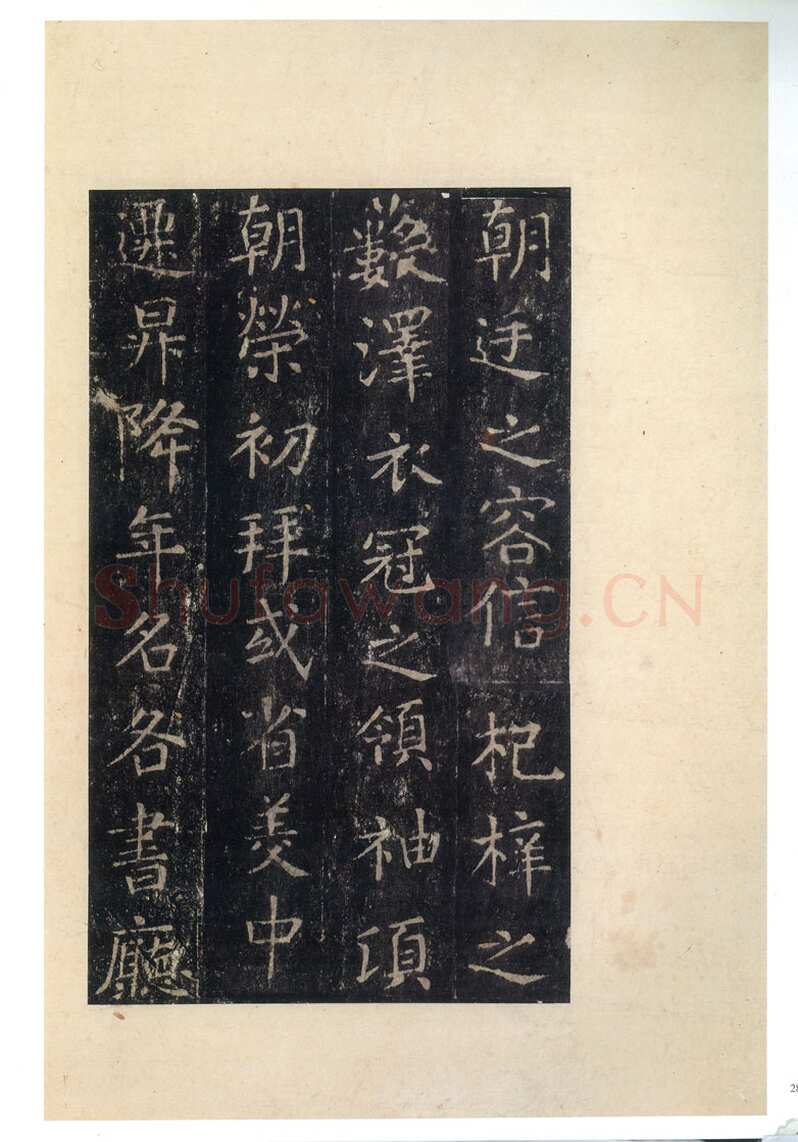 朝廷之容信杞梓之
薮澤衣冠之領袖項
朝榮初拜或省美中
遷昇降年名各書廳
Shufawang.CN